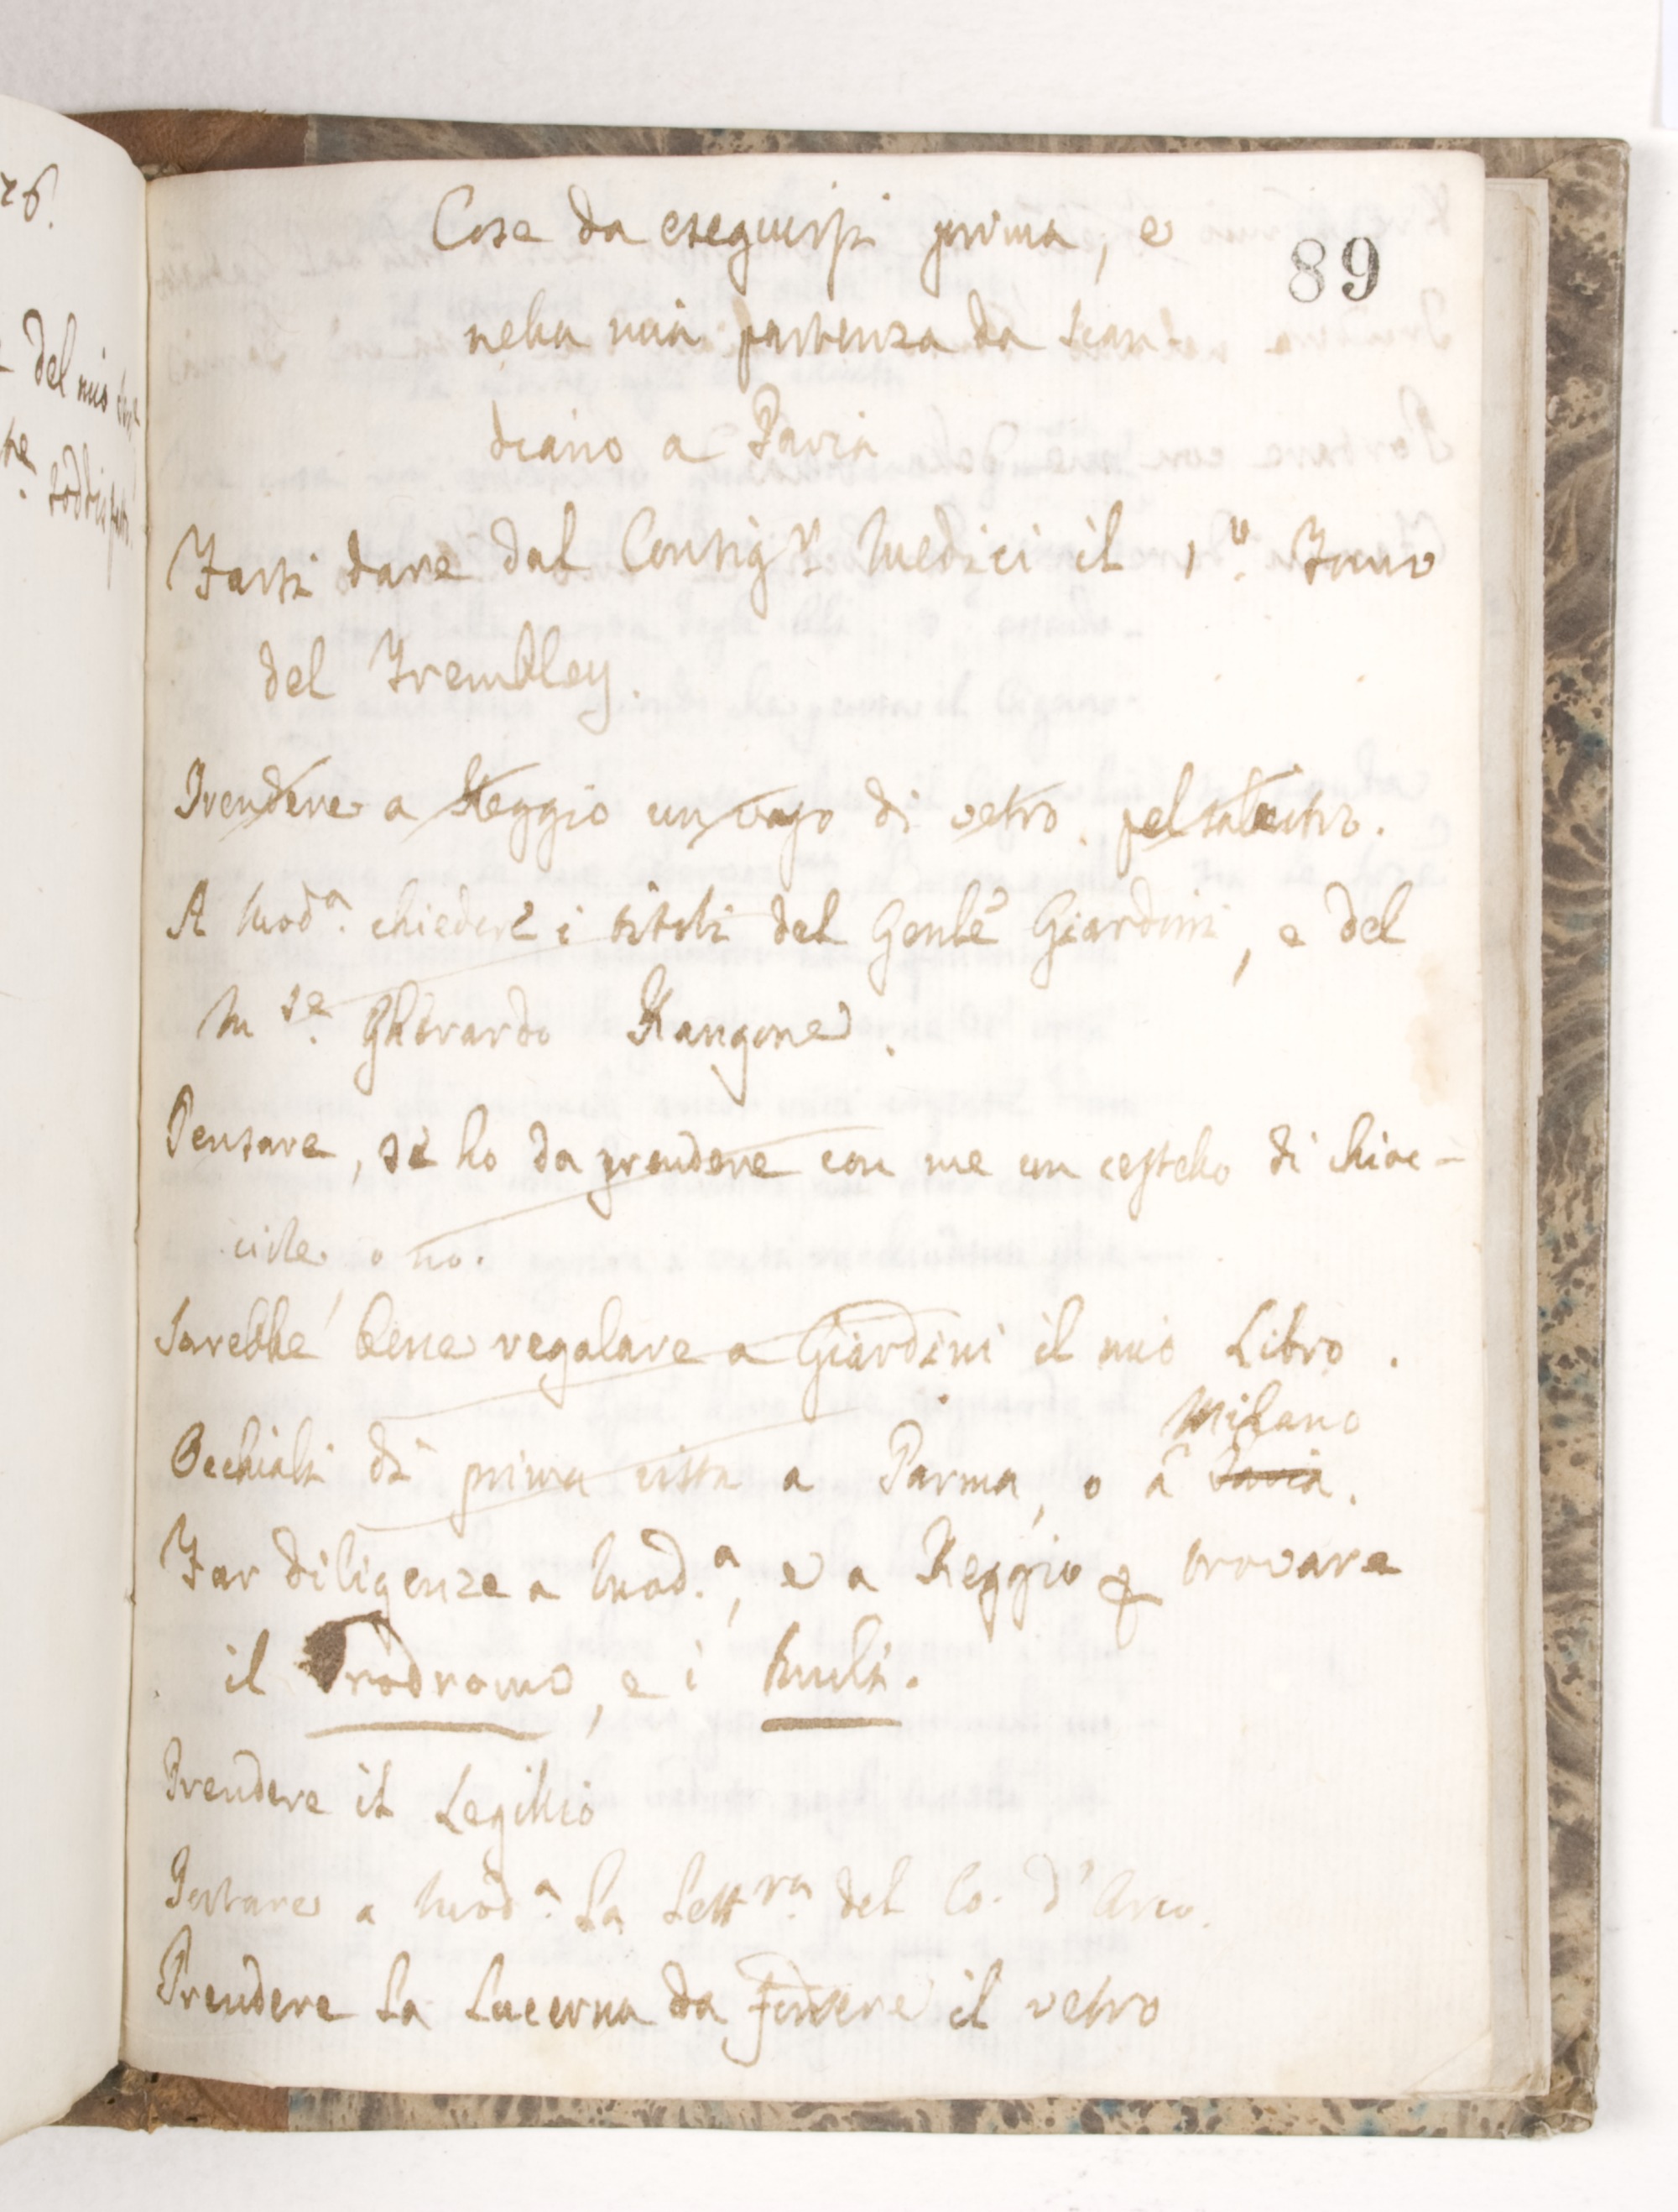 26.
del mio
Cose da eseguirsi prima, e
89
nella mia partenza da Scan
diano a Pavia
Farsi dare dal Consigr Medici il 1o. Tomo
del Trembley.
Prendere a Reggio un vaso di vetro pel salnitro.
A Moda. chiedere i titoli del Genle Giardini, e del
M.se Gherardo Rangone.
Pensare, se ho da prendere con me un cestello di chioc-
ciole, o no.
Sarebbe bene regalare a Giardini il mio Libro.
Milano
Occhiali di prima vista a Parma, o a Pavia.
Far diligenze a Mod.a, e a Reggio p trovare
il Prodromo, e i Muli.
Prendere il Legilio
Portare a Mod.a la Lettra. del Co. d'Arco.
Prendere la Lucerna da fondere il vetro